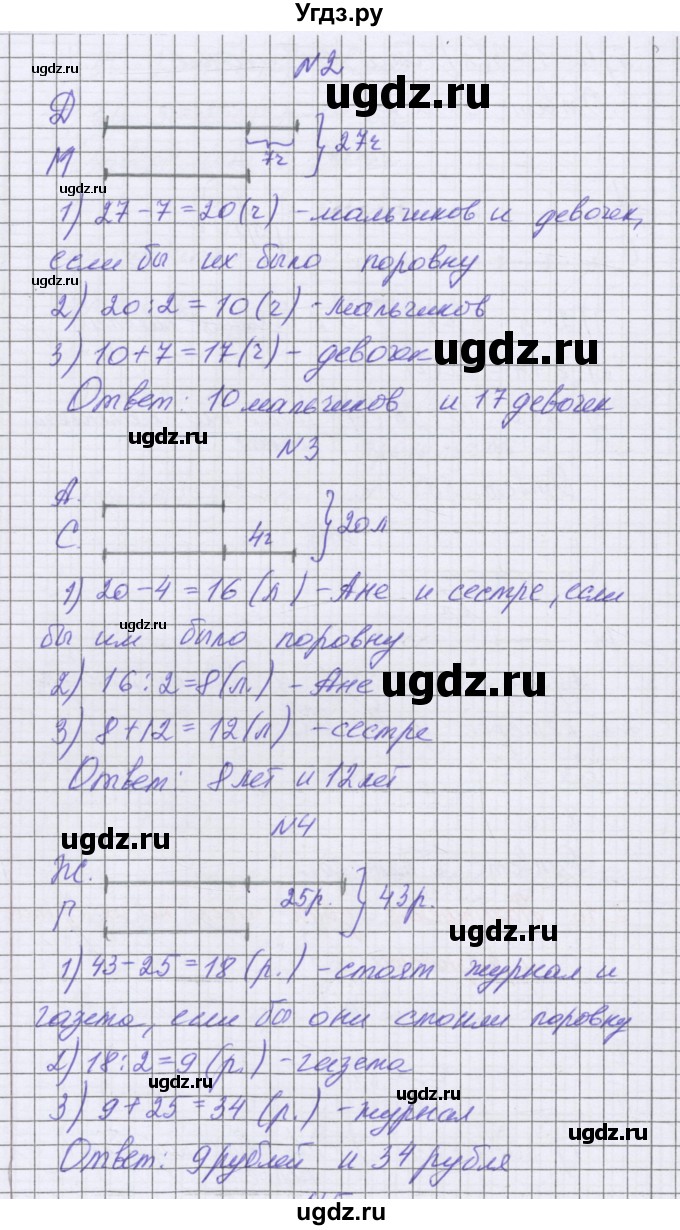 Угдз.ру
ugdz.ru
№2
ugdz.ru
Д
7ч
27ч
М
ugdz.ru
1) 27-7=20(ч) - мальчиков и девочек,
если бы их было поровну
ugdz.ru
2) 20:2=10(ч) - мальчиков
ugdz.ru
3) 10+7=17(ч) - девочек
Ответ: 10 мальчиков и 17 девочек
ugdz.ru
№3
А.
С.
4г
20л
1) 20-4=16(л) - Ане и сестре, если
ugdz.ru
бы им было поровну
2) 16:2=8(л.) - Ане
ugdz.ru
3) 8+12=12(л) - сестре
Ответ: 8 лет и 12 лет
№4
ugdz.ru
Ж.
25р.
43р.
Г.
ugdz.ru
1) 43-25=18(р.) - стоят журнал и
газета, если бы они стоили поровну
2) 18:2=9(р.) - газета
ugdz.ru
ugdz.ru
3) 9+25=34(р.) - журнал
ugdz.ru
Ответ: 9 рублей и 34 рубля
ugdz.ru